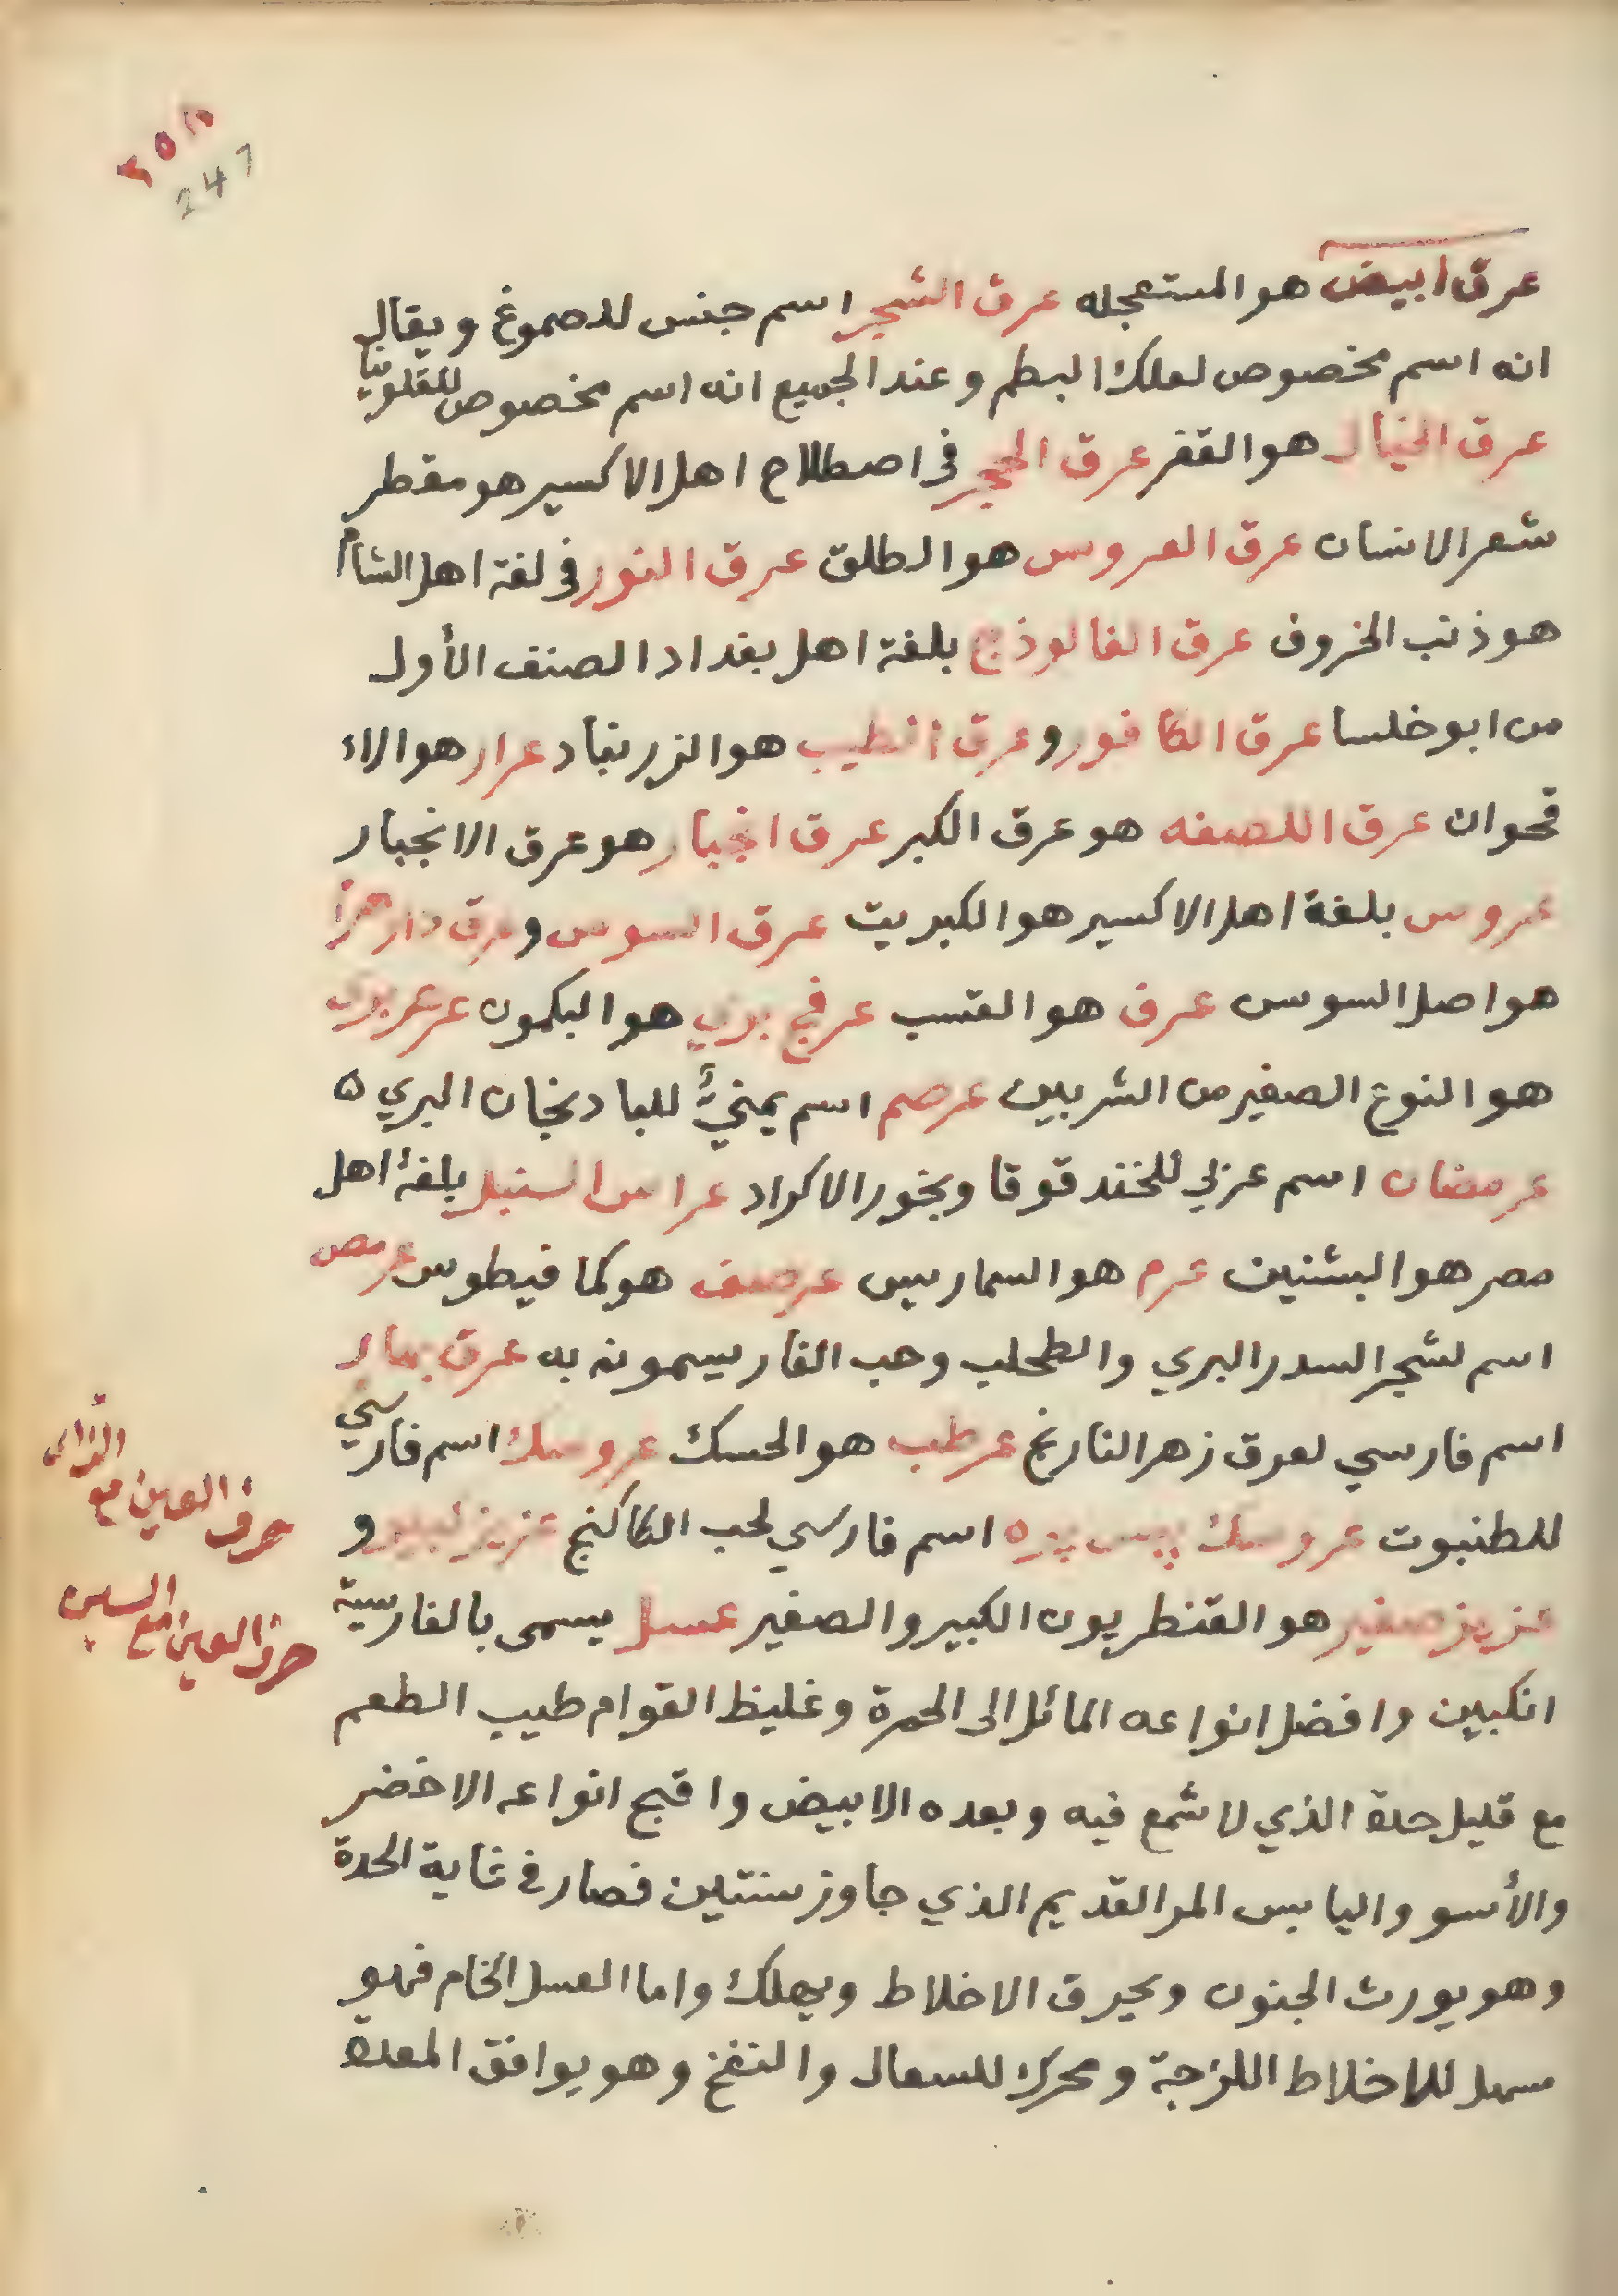 ٢٥٨
247
عرق ابيض هو المستعجله عرق الشجر اسم جنس للصموغ ويقال
انه اسم مخصوص لعلك البطم وعند الجميع انه اسم مخصوص للقلونيا
عرق الخيال هو القفر عرق الحجر في اصطلاح اهل الاكسير هو مقطر
شعر الانسان عرق العروس هو الطلق عرق النور في لغة اهل الشام
هو ذنب الخروف عرق الفالوذج بلغة اهل بغداد الصنف الأول
من ابو خلسا عرق الكافور وعرق الطيب هو الزرنباد عرار هو الاء
قحوان عرق اللصفه هو عرق الكبر عرق انجبار هو عرق الانجبار
عروس بلغة اهل الاكسير هو الكبريت عرق السوس وعرق دار هرا
هو اصل السوس عرف هو القسب عرفج بري هو البكمون عرعر بري
هو النوع الصغير من الشربين عرصم اسم يمنيٌّ للبادنجان البري ه
عرمضان اسم عربي للخندقوقا وبخور الاكراد عراس السنبل بلغة اهل
مصر هو البشنين عرم هو السماريس عرصف هو كما فيطوس عرمص
اسم لشجر السدر البري والطحلب وحب الغار يسمونه به عرق بهار
اسم فارسي لعرق زهر النارنج عرطب هو الحسك عروسك اسم فارسي
للطنبوت عروسك پس پرده اسم فارسي لحب الكاكنج عزيز كبير و
عزيز صغير هو القنطريون الكبير والصغير عسل يسمى بالفارسية
انكبين وافضل انواعه المائل الى الحمرة وغليظ القوام طيب الطعم
مع قليل حدة الذي لا شمع فيه وبعده الابيض واقبح انواعه الاخضر
والأسو واليابس المر القديم الذي جاوز سنتين فصار في غاية الحدة
وهو يورث الجنون ويحرق الاخلاط ويهلك واما العسل الخام فهو
مسهل للاخلاط اللزجة ومحرك للسعال والنفخ وهو يوافق المعدة
حرف العين مع الزاى
حرف العين مع السين